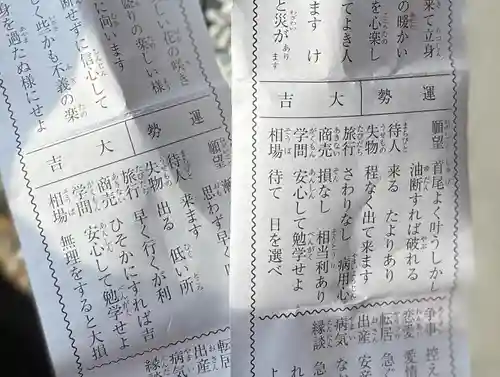 来て立身
の暖かい
を心楽し
てよき人
ます け
と災が
あり
ます
運勢 大吉
願望 首尾よく叶うしかし
油断すれば破れる
待人 来る たよりあり
失物 程なく出て来ます
旅行 さわりなし 病用心
商売 損なし 相当利あり
学問 安心して勉学せよ
相場 待て 日を選べ
争事 控え
恋愛 愛情
転居 急
出産 安
病気 な
縁談 急
しい花の咲き
盛りの楽しい様
に向います
断せずに信心して
く些かも不義の楽
身を過たぬ様にせよ
運勢 大吉
願望
思わず早く
待人 来ます
失物 出る 低い所
旅行 早く行くが利
商売 ひそかにすれば吉
学問 安心して勉学せよ
相場 無理をすると大損
転居
出産
病気
縁談